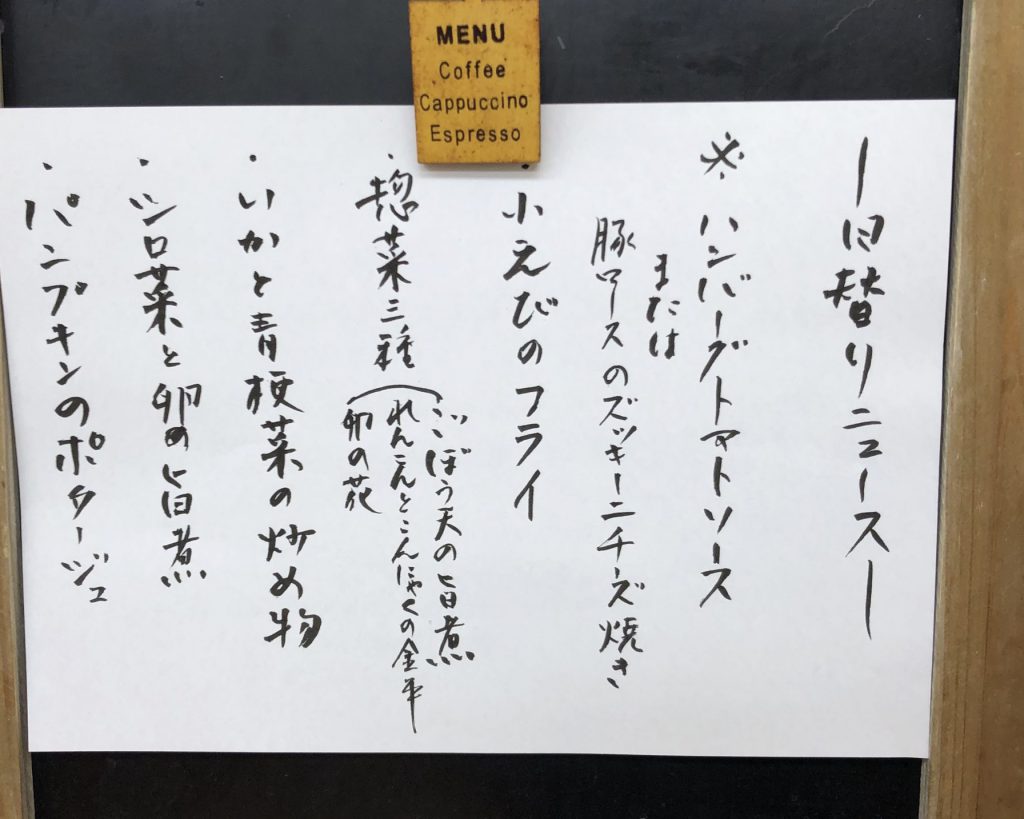 MENU
Coffee
Cappuccino
Espresso
ー日替りニュースー
※ ハンバーグトマトソース
または
豚ロースのズッキーニチーズ焼き
・小えびのフライ
・惣菜三種
(ごぼう天の旨煮
れんこんとこんにゃくの金平
卯の花
・いかと青梗菜の炒め物
・シロ菜と卵の旨煮
・パンプキンのポタージュ